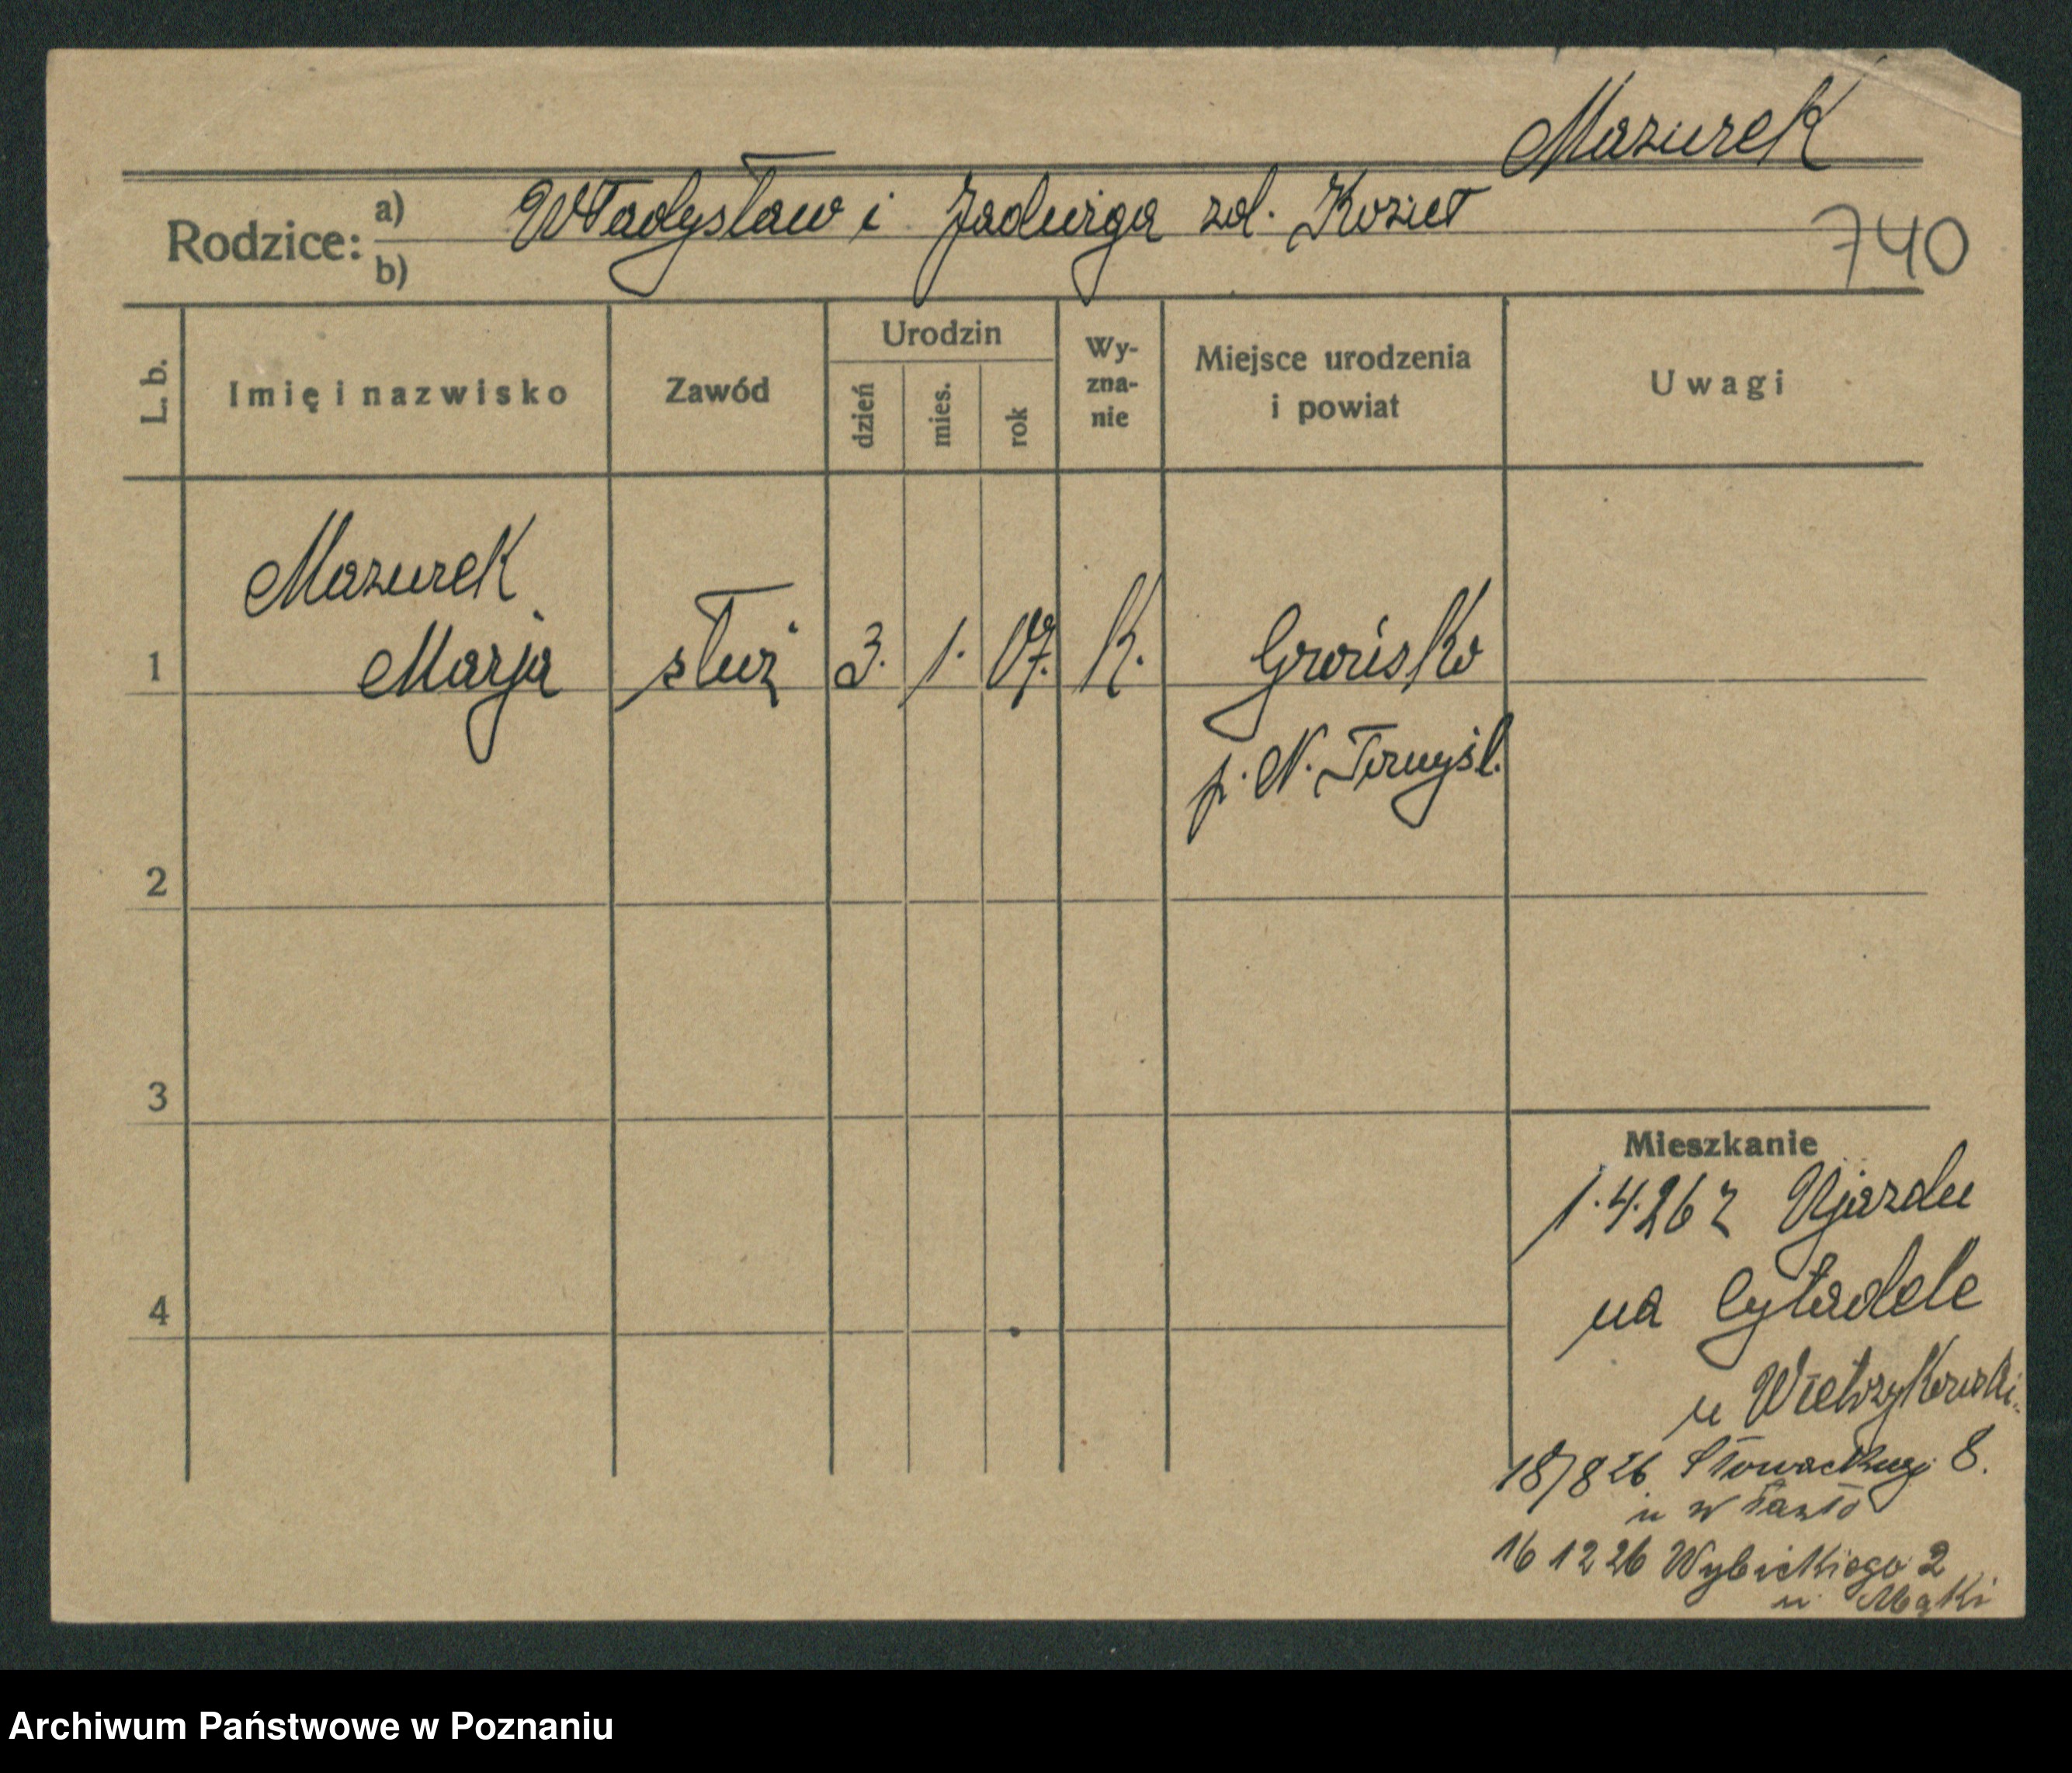 Mazurek
Rodzice: a) Władysław i Jadwiga zd. Kozieł
b)
740
L. b.
Imię i nazwisko
Zawód
Urodzin
dzień
mies.
rok
Wy-
zna-
nie
Miejsce urodzenia
i powiat
Uwagi
Mazurek
1 Marja służ 3. 1. 07. K. Grońsko
p. N. Tomyśl.
2
3
Mieszkanie
1.4.26 z Ujazdu
4 na Cytadele
u
18/8 26 Słowackiego 8.
u
16 12 26 Wybickiego 2
u Mąki
Archiwum Państwowe w Poznaniu